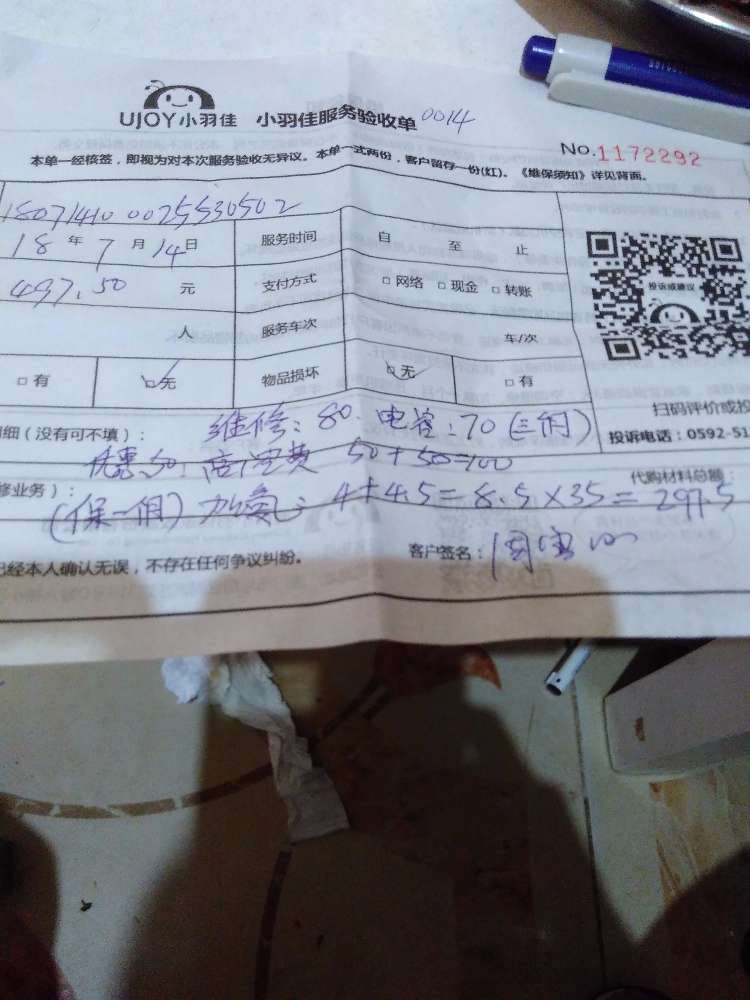 UJOY小羽佳 小羽佳服务验收单 0014
No.1172292
本单一经核签，即视为对本次服务验收无异议。本单一式两份，客户留存一份(红)。《维保须知》详见背面。
18071410 0025530502
18 年 7 月 14 日 服务时间 自 至 止
497.50 元 支付方式 □网络 □现金 □转账
投诉或建议
人 服务车次 车/次
□有 ☑无 物品损坏 ☑无 □有
扫码评价或投
细（没有可不填）： 维修：80. 电容：70（三个月）
投诉电话：0592-51
优惠50. 高空费 50+50=100
代购材料总额：
修业务）：
（保一个月）加氟：4+4.5=8.5×35=297.5
已经本人确认无误，不存在任何争议纠纷。 客户签名：